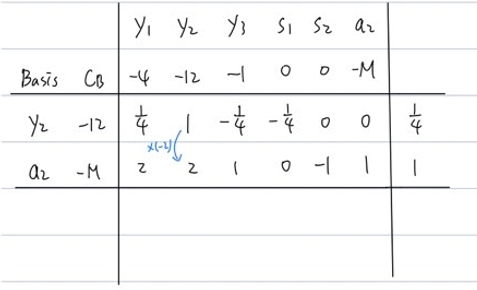 y₁ y₂ y₃ s₁ s₂ a₂
Basis C_B -4 -12 -1 0 0 -M
y₂ -12 1/4 1 -1/4 -1/4 0 0 1/4
×(-2)
a₂ -M 2 2 1 0 -1 1 1